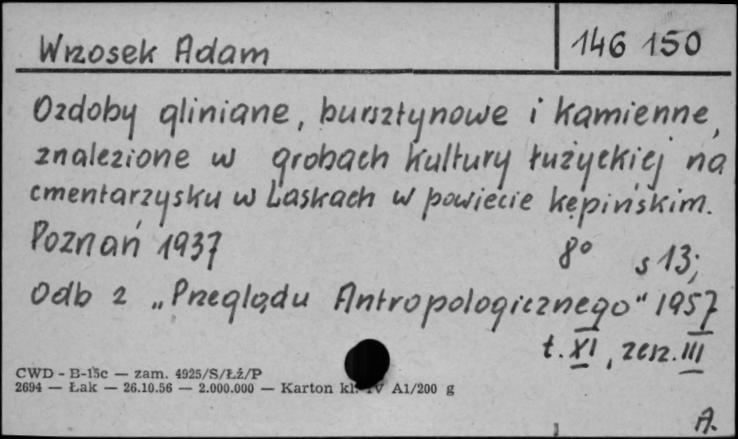 Wrzosek Adam 146 150
Ozdoby gliniane, bursztynowe i kamienne,
znalezione w grobach kultury łużyckiej na
cmentarzysku w Laskach w powiecie kępińskim.
Poznań 1937 8° s 13;
Odb z „Przeglądu Antropologicznego" 1957
t. XI, zesz. III
CWD - B-15c — zam. 4925/S/Łź/P
2694 — Łak — 26.10.56 — 2.000.000 — Karton kl. IV A1/200 g
A.